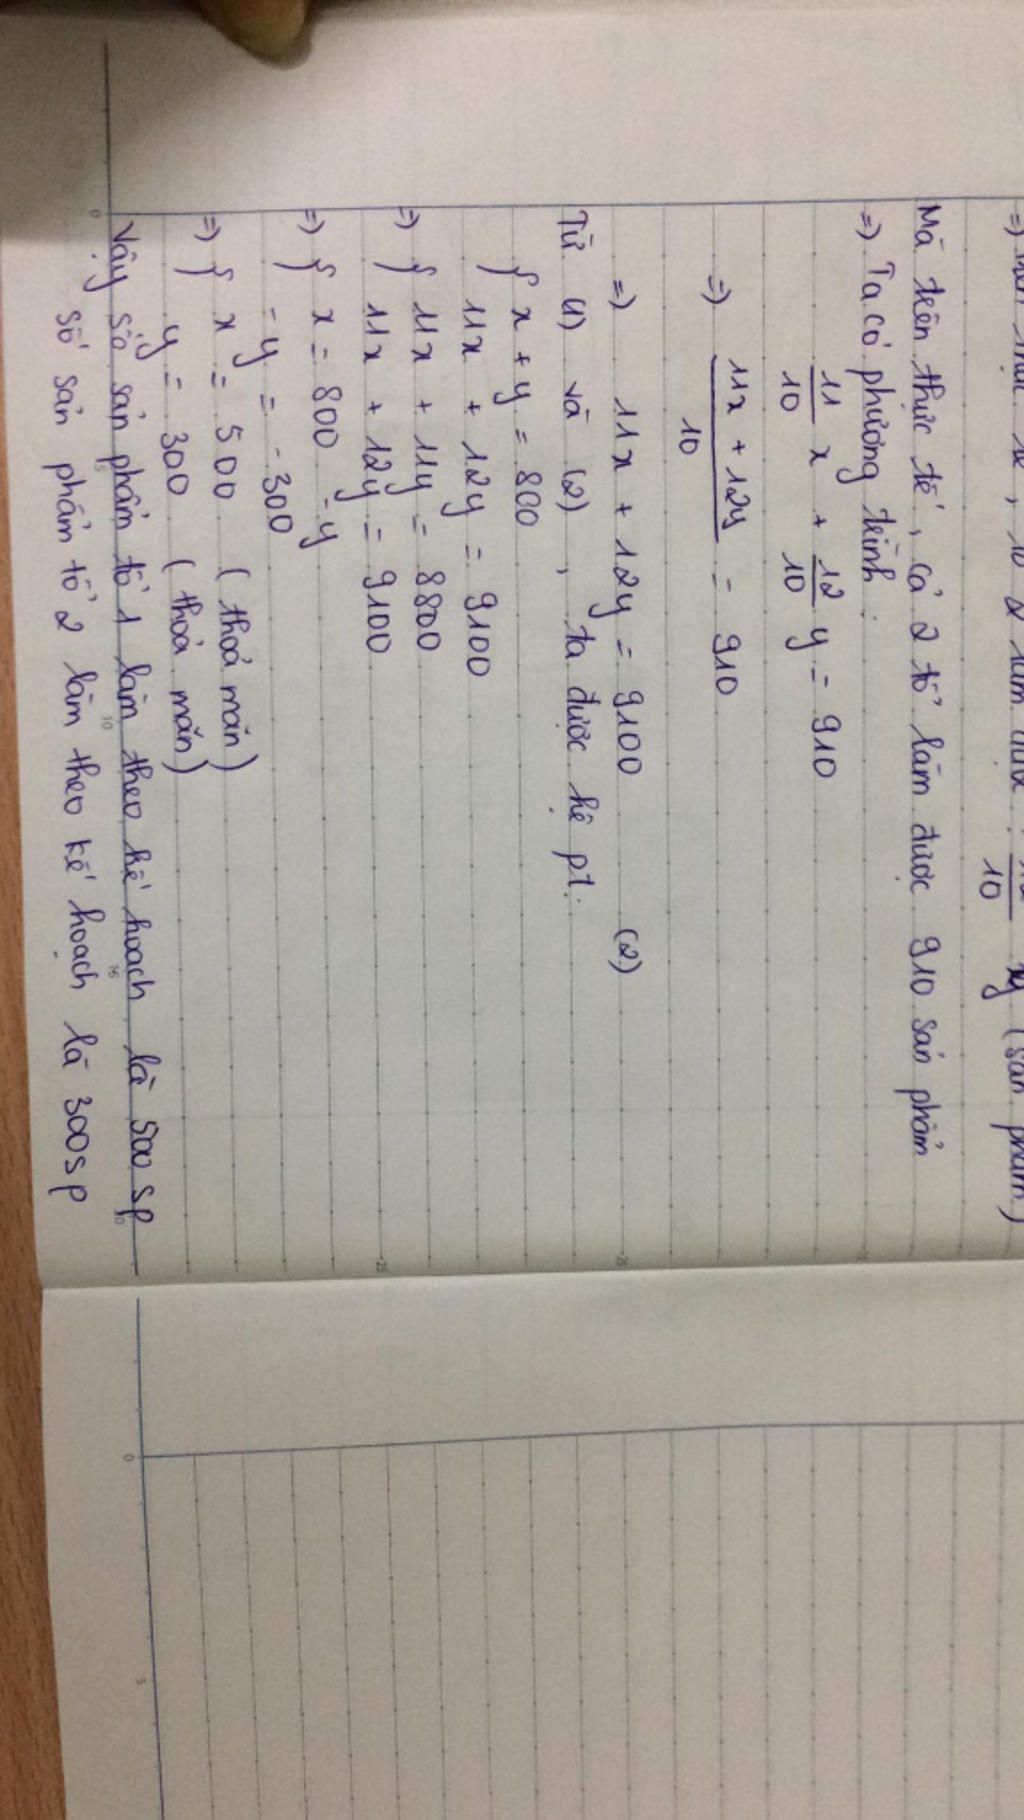 tế, tổ 2 làm được : 12/10 y (sản phẩm)
Mà trên thực tế, cả 2 tổ làm được 910 sản phẩm
=) Ta có phương trình :
11/10 x + 12/10 y = 910
=) (11x + 12y)/10 = 910
=) 11x + 12y = 9100 (2)
Từ (1) và (2) , ta được hệ pt:
{ x + y = 800
11x + 12y = 9100
=) { 11x + 11y = 8800
11x + 12y = 9100
=) { x = 800 - y
- y = - 300
=) { x = 500 (thoả mãn)
y = 300 (thoả mãn)
Vậy số sản phẩm tổ 1 làm theo kế hoạch là 500 sp
số sản phẩm tổ 2 làm theo kế hoạch là 300sp